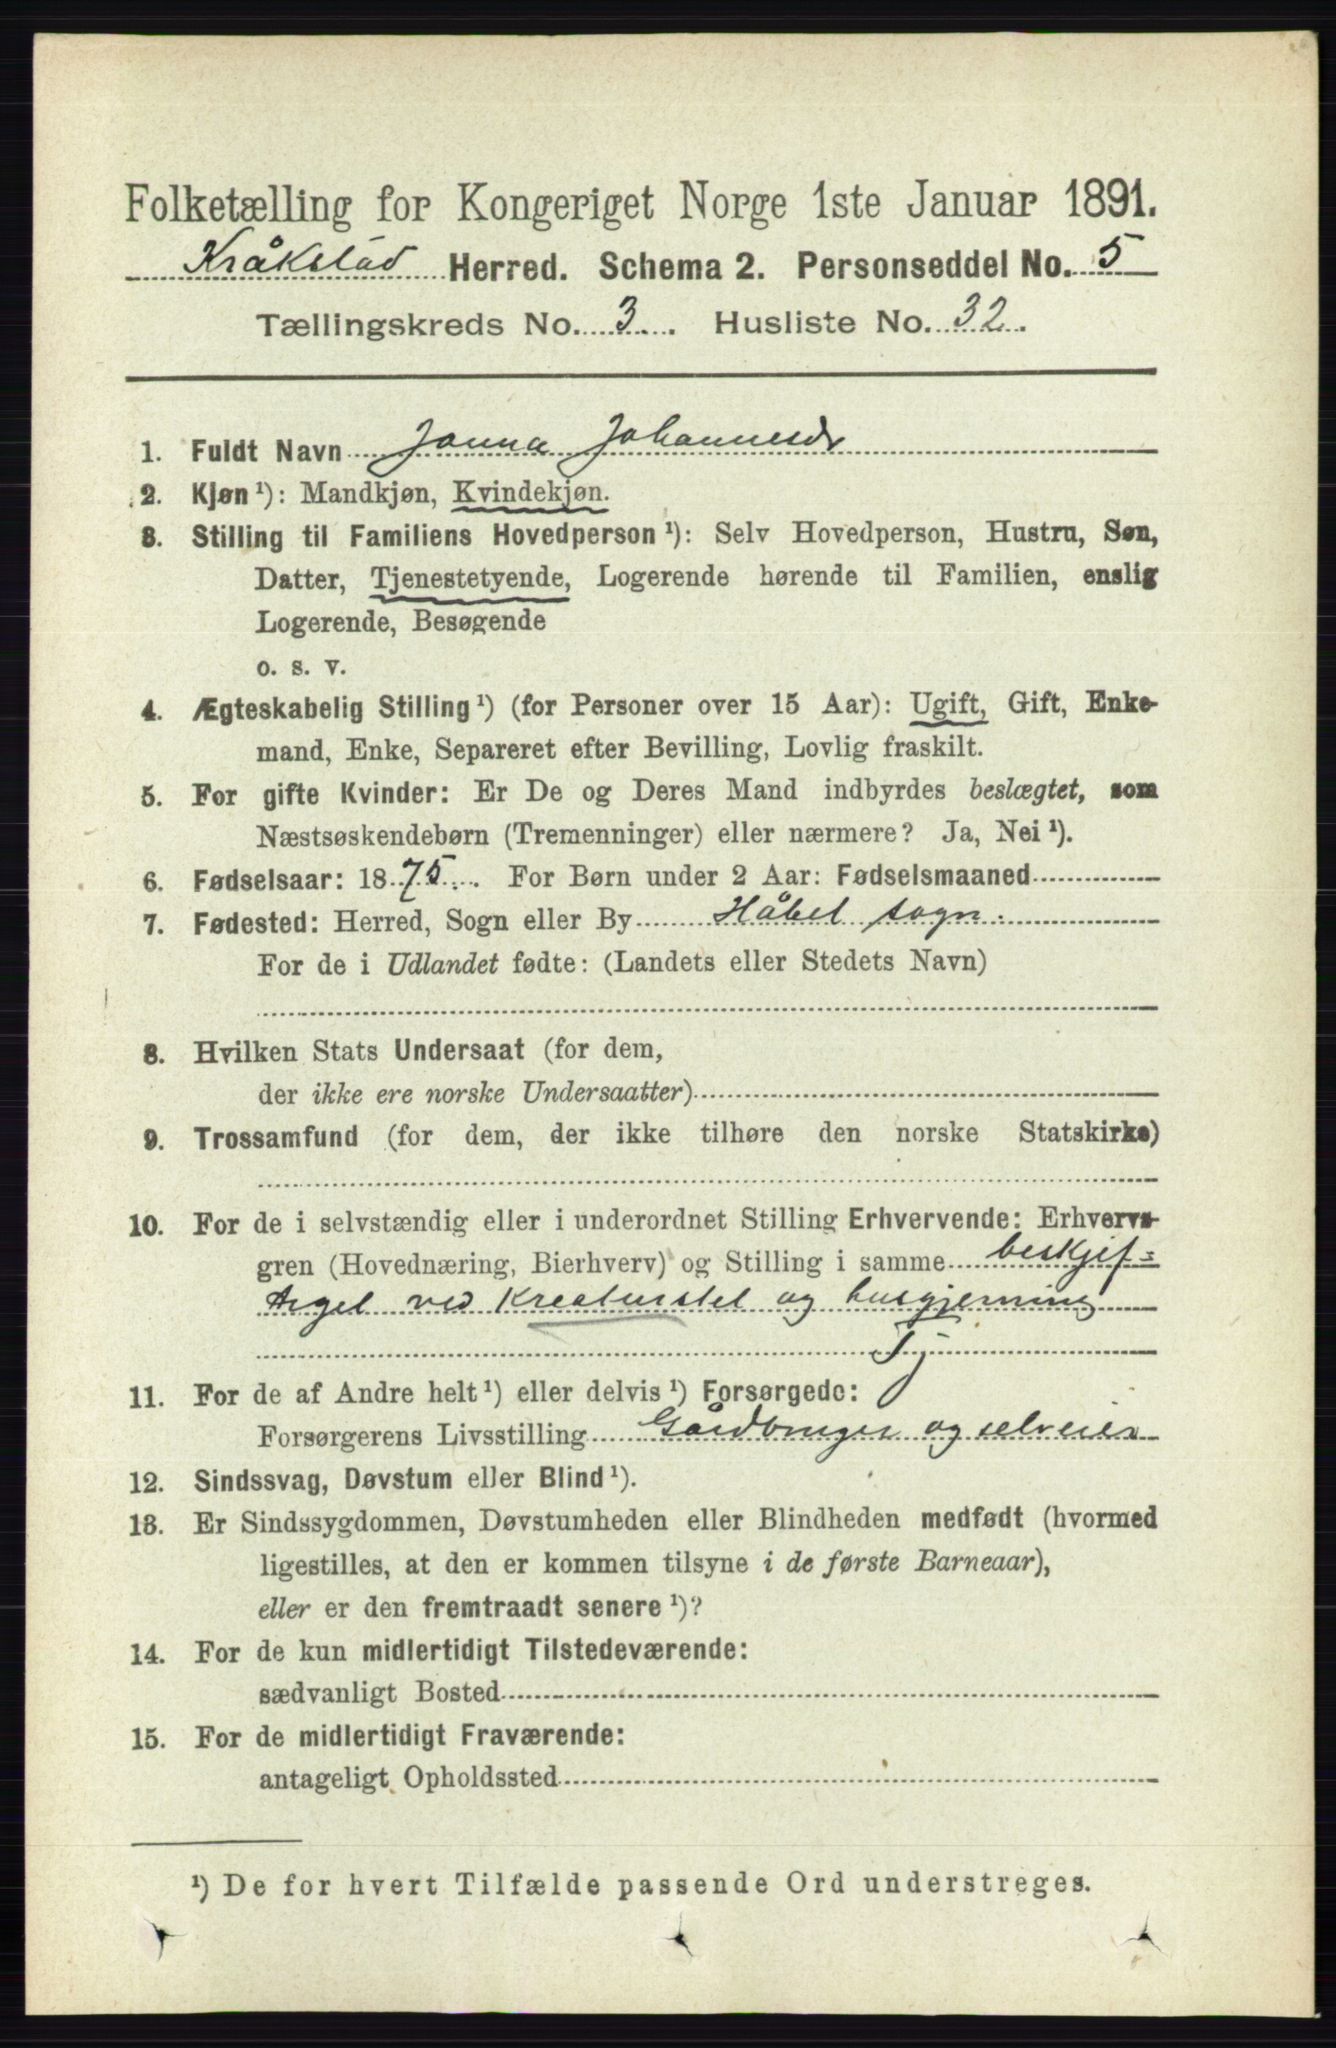 Folketælling for Kongeriget Norge 1ste Januar 1891.
Kråkstad Herred. Schema 2. Personseddel No. 5
Tællingskreds No. 3. Husliste No. 32.
1. Fuldt Navn Janna Johannesdr
2. Kjøn¹): Mandkjøn, Kvindekjøn.
3. Stilling til Familiens Hovedperson¹): Selv Hovedperson, Hustru, Søn,
Datter, Tjenestetyende, Logerende hørende til Familien, enslig
Logerende, Besøgende
o. s. v.
4. Ægteskabelig Stilling¹) (for Personer over 15 Aar): Ugift, Gift, Enke-
mand, Enke, Separeret efter Bevilling, Lovlig fraskilt.
5. For gifte Kvinder: Er De og Deres Mand indbyrdes beslægtet, som
Næstsøskendebørn (Tremenninger) eller nærmere? Ja, Nei¹).
6. Fødselsaar: 1875. For Børn under 2 Aar: Fødselsmaaned
7. Fødested: Herred, Sogn eller By Håbel sogn.
For de i Udlandet fødte: (Landets eller Stedets Navn)
8. Hvilken Stats Undersaat (for dem,
der ikke ere norske Undersaatter)
9. Trossamfund (for dem, der ikke tilhøre den norske Statskirke)
10. For de i selvstændig eller i underordnet Stilling Erhvervende: Erhvervs-
gren (Hovednæring, Bierhverv) og Stilling i samme beskjef=
tiget ved Kreaturstel og husgjerning
Tj
11. For de af Andre helt¹) eller delvis¹) Forsørgede:
Forsørgerens Livsstilling Gårdbruger og selveier
12. Sindssvag, Døvstum eller Blind¹).
13. Er Sindssygdommen, Døvstumheden eller Blindheden medfødt (hvormed
ligestilles, at den er kommen tilsyne i de første Barneaar),
eller er den fremtraadt senere¹)?
14. For de kun midlertidigt Tilstedeværende:
sædvanligt Bosted
15. For de midlertidigt Fraværende:
antageligt Opholdssted
¹) De for hvert Tilfælde passende Ord understreges.